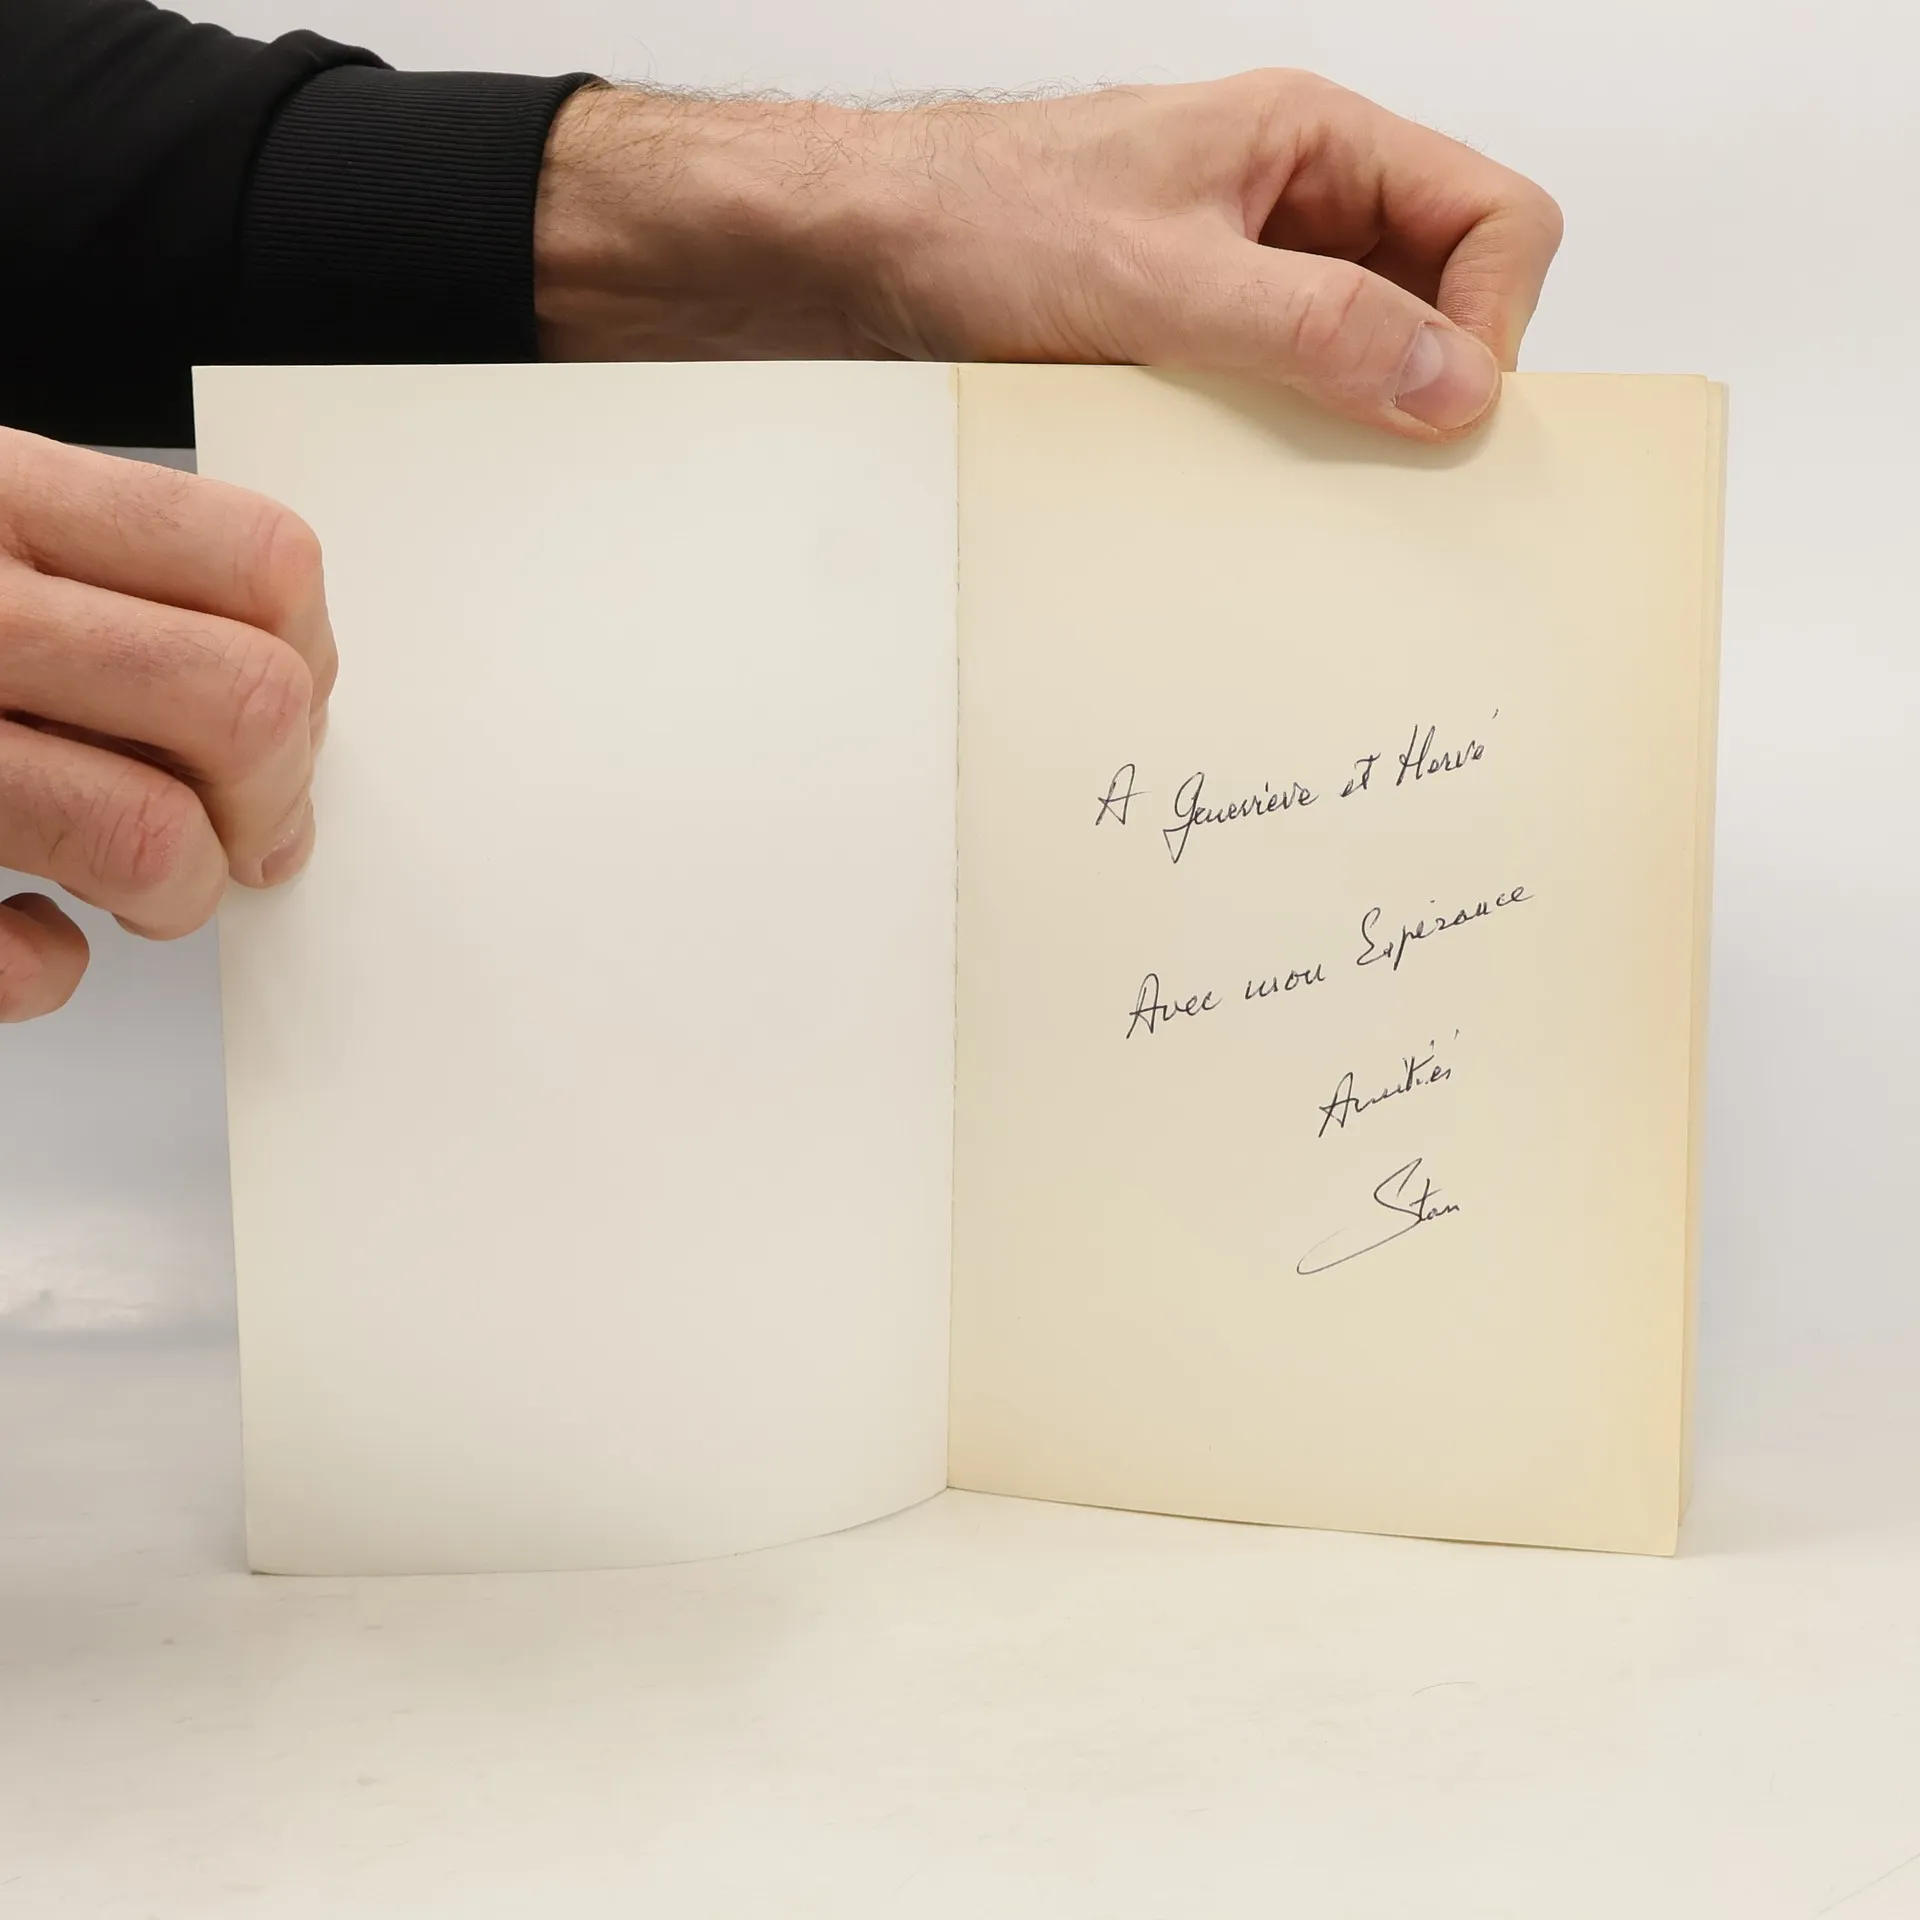 A Geneviève et Hervé
Avec mon Espérance
Amitiés
Stan